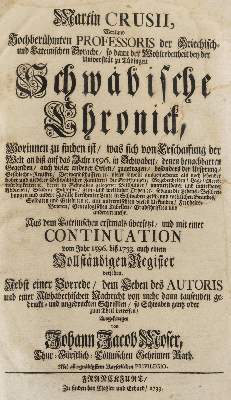 Martin CRUSII,
Weiland
Hochberühmten PROFESSORIS der Griechisch-
und Lateinischen Sprache, so dann der Wohlredenheit bey der
Universität zu Tübingen
Schwäbische
Chronick,
Worinnen zu finden ist / was sich von Erschaffung der
Welt an biß auf das Jahr 1596. in Schwaben, denen benachbarten
Gegenden, auch vieler anderer Orten, zugetragen, besonders der Ursprung,
Aus dem Lateinischen erstmals übersetzt, und mit einer
CONTINUATION
vom Jahr 1596. biß 1733. auch einem
Vollständigen Register
versehen.
Nebst einer Vorrede, dem Leben des AUTORIS
und einer Alphabetischen Nachricht von mehr dann tausenden ge-
druckt- und ungedruckten Schrifften, so Schwaben gantz oder
zum Theil betreffen,
Ausgefertiget
von
Johann Jacob Moser,
Chur-Fürstlich-Cöllnischen Geheimen Rath.
Mit allergnädigstem Kayserlichen PRIVILEGIO.
FRANCKFURT,
Zu finden bey Metzler und Erhard, 1733.